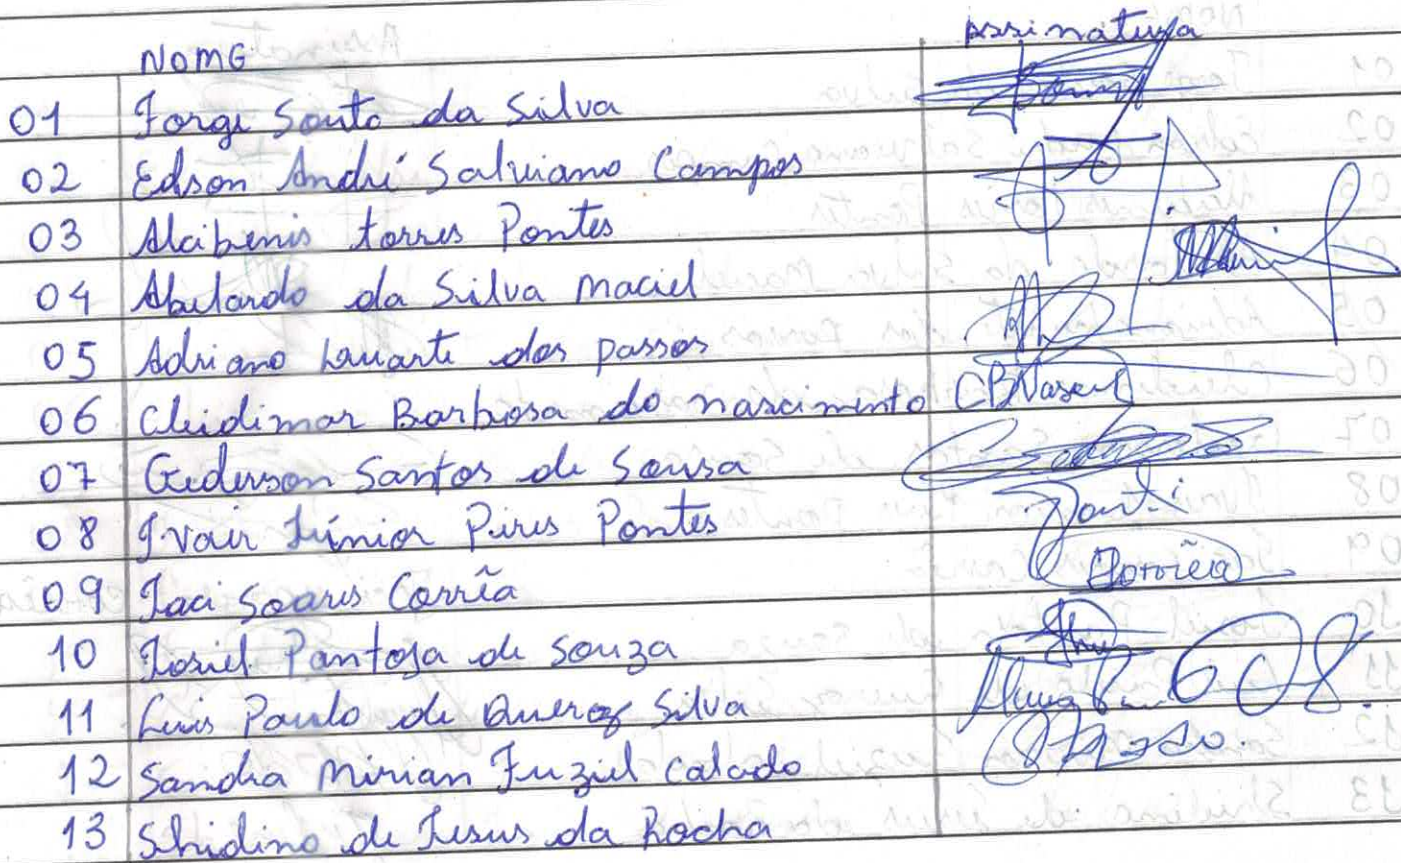 NOME assinatura
01 Jorge Souto da Silva
02 Edson André Salviano Campos
03 Alcibenis torres Pontes
04 Abelardo da Silva maciel
05 Adriano Lauarte dos passos
06 Cleidimar Barbosa do nascimento CBNascim
07 Gederson Santos de Sousa
08 Ivair Júnior Pires Pontes
09 Jaci Soares Corrêa Corrêa
10 Josiel Pantoja de Souza
11 Luis Paulo de Queroz Silva
12 Sandra Mirian Fuziel Calado
13 Shidino de Jesus da Rocha